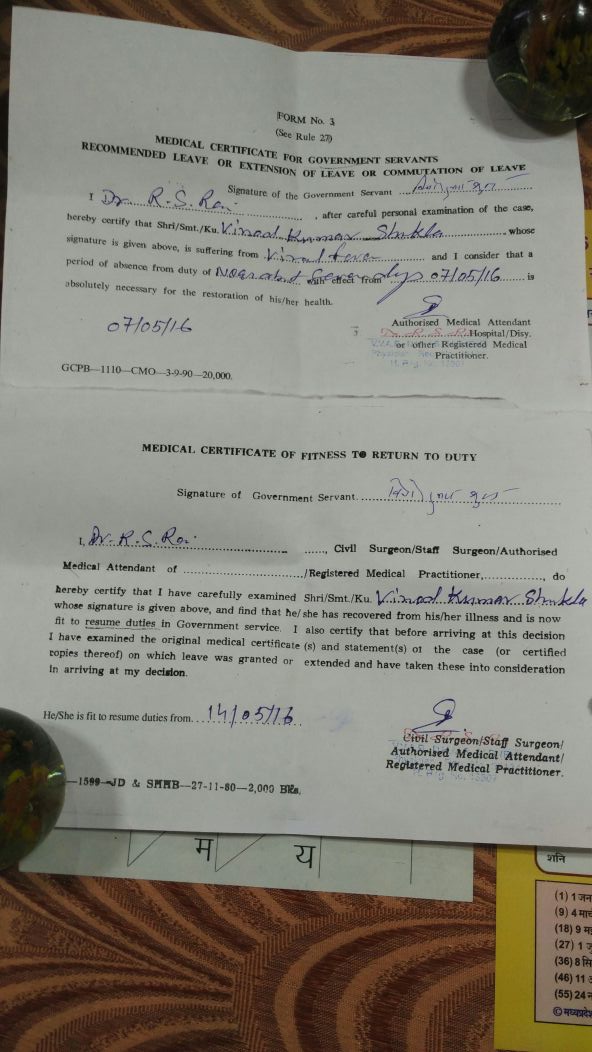 FORM No. 3
(See Rule 27)
MEDICAL CERTIFICATE FOR GOVERNMENT SERVANTS
RECOMMENDED LEAVE OR EXTENSION OF LEAVE OR COMMUTATION OF LEAVE
Signature of the Government Servant
I Dr. R.S. Rai , after careful personal examination of the case,
hereby certify that Shri/Smt./Ku. Vinod Kumar Shukla , whose
signature is given above, is suffering from Viral fever and I consider that a
period of absence from duty of with effect from 07/05/16 is
absolutely necessary for the restoration of his/her health.
07/05/16
Authorised Medical Attendant
Hospital/Disy.
or other Registered Medical
Practitioner.
GCPB—1110—CMO—3-9-90—20,000.
MEDICAL CERTIFICATE OF FITNESS TO RETURN TO DUTY
Signature of Government Servant
I, Dr. R.S. Rai , Civil Surgeon/Staff Surgeon/Authorised
Medical Attendant of /Registered Medical Practitioner, , do
hereby certify that I have carefully examined Shri/Smt./Ku. Vinod Kumar Shukla
whose signature is given above, and find that he/she has recovered from his/her illness and is now
fit to resume duties in Government service. I also certify that before arriving at this decision
I have examined the original medical certificate (s) and statement(s) of the case (or certified
copies thereof) on which leave was granted or extended and have taken these into consideration
in arriving at my decision.
He/She is fit to resume duties from. 14/05/16
Civil Surgeon/Staff Surgeon/
Authorised Medical Attendant/
Registered Medical Practitioner.
JD & SMHB—27-11-80—2,000 Bks.
म य
शनि
(1) 1 जन
(9) 4 मार्च
(18) 9 मई
(27) 1 जु
(36) 8 सि
(46) 11 अ
(55) 24 न